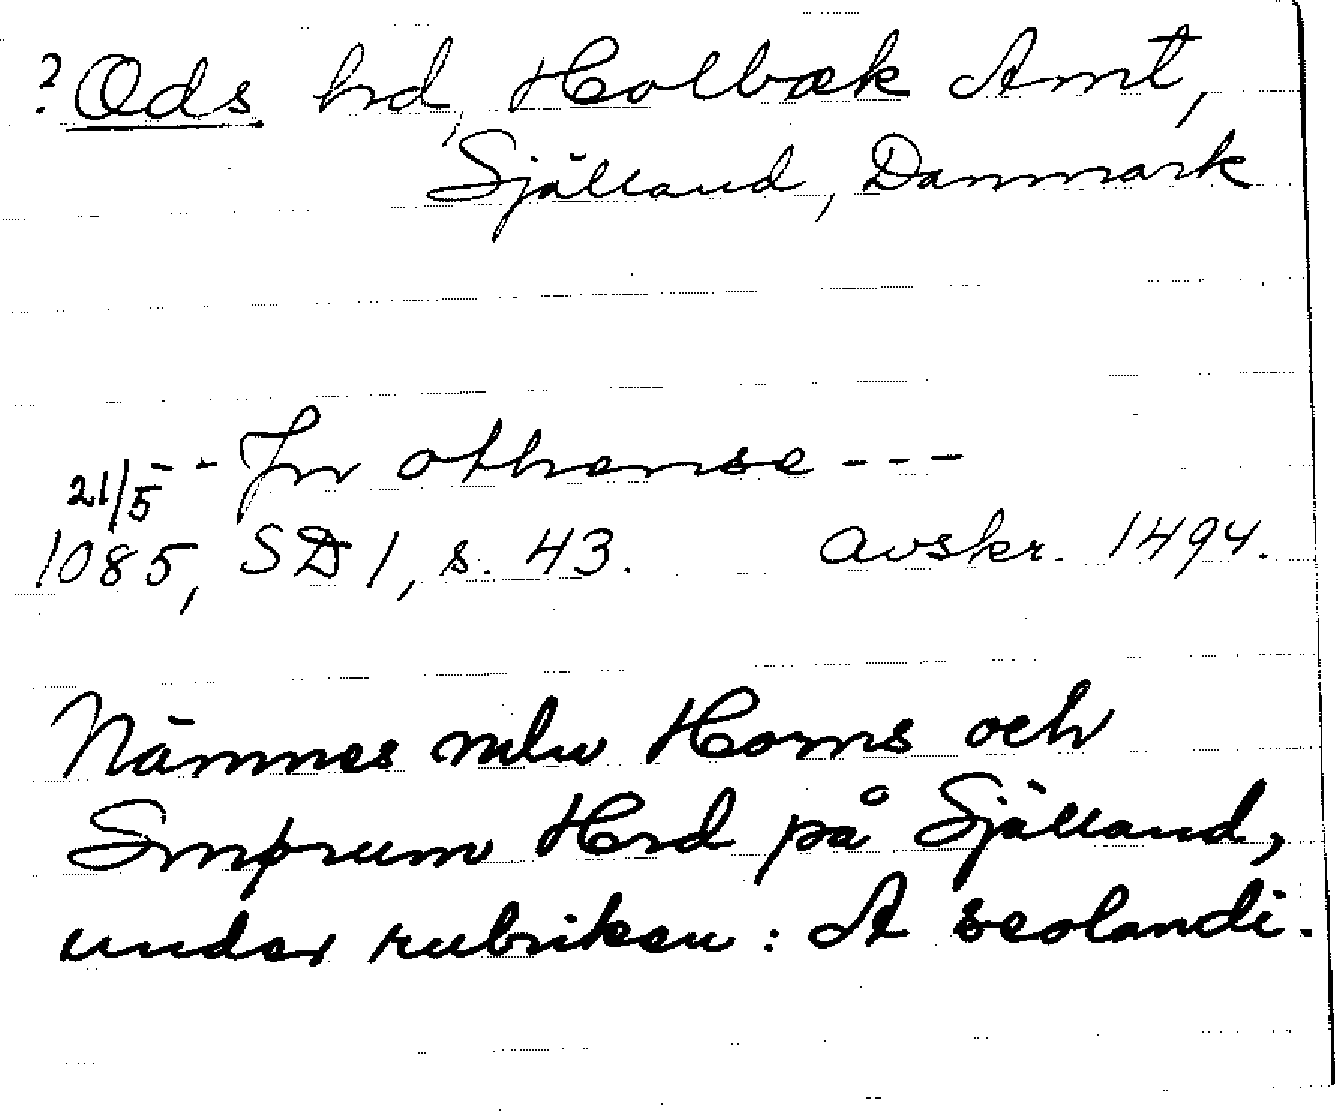 ? Ods hd, Holbæk Amt,
Själland, Danmark
-- Jn othense ---
21/5
1085, SD 1, s. 43. avskr. 1494.
Nämnes mlw Horns och
Smprum Hrd på Själland,
under rubriken: A seolandi.